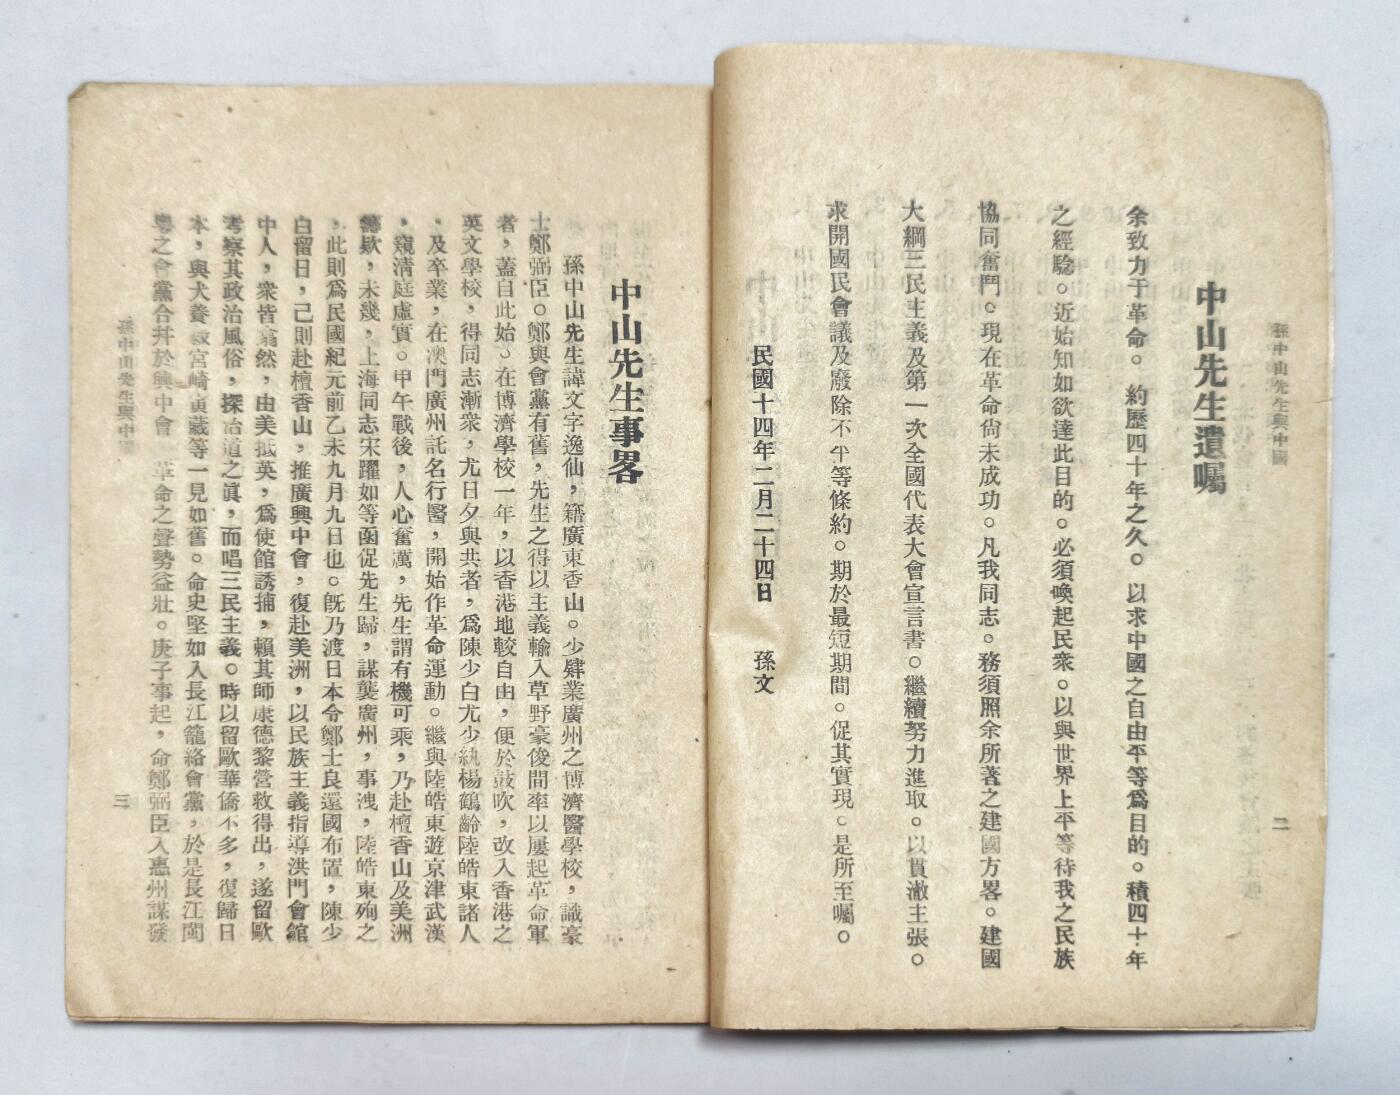 孫中山先生與中國
二
中山先生遺囑
余致力于革命。約歷四十年之久。以求中國之自由平等爲目的。積四十年
之經驗。近始知如欲達此目的。必須喚起民衆。以與世界上平等待我之民族
協同奮鬥。現在革命尙未成功。凡我同志。務須照余所著之建國方畧。建國
大綱三民主義及第一次全國代表大會宣言書。繼續努力進取。以貫澈主張。
求開國民會議及廢除不平等條約。期於最短期間。促其實現。是所至囑。
民國十四年二月二十四日　孫文
中山先生事畧
孫中山先生諱文字逸仙，籍廣東香山。少肄業廣州之博濟醫學校，識豪
士鄭弼臣。鄭與會黨有舊，先生之得以主義輸入草野豪俊間率以屢起革命軍
者，蓋自此始。在博濟學校一年，以香港地較自由，便於鼓吹，改入香港之
英文學校，得同志漸衆，尤日夕與共者，爲陳少白尤少紈楊鶴齡陸皓東諸人
，及卒業，在澳門廣州託名行醫，開始作革命運動。繼與陸皓東遊京津武漢
，窺淸庭虛實。甲午戰後，人心奮厲，先生謂有機可乘，乃赴檀香山及美洲
籌欵，未幾，上海同志宋躍如等函促先生歸，謀襲廣州，事洩，陸皓東殉之
，此則爲民國紀元前乙未九月九日也。旣乃渡日本令鄭士良還國布置，陳少
白留日，己則赴檀香山，推廣興中會，復赴美洲，以民族主義指導洪門會館
中人，衆皆翕然，由美抵英，爲使館誘捕，賴其師康德黎營救得出，遂留歐
考察其政治風俗，探治道之眞，而唱三民主義。時以留歐華僑不多，復歸日
本，與犬養毅宮崎寅藏等一見如舊。命史堅如入長江籠絡會黨，於是長江閩
粵之會黨合并於興中會，革命之聲勢益壯。庚子事起，命鄭弼臣入惠州謀發
孫中山先生與中國
三